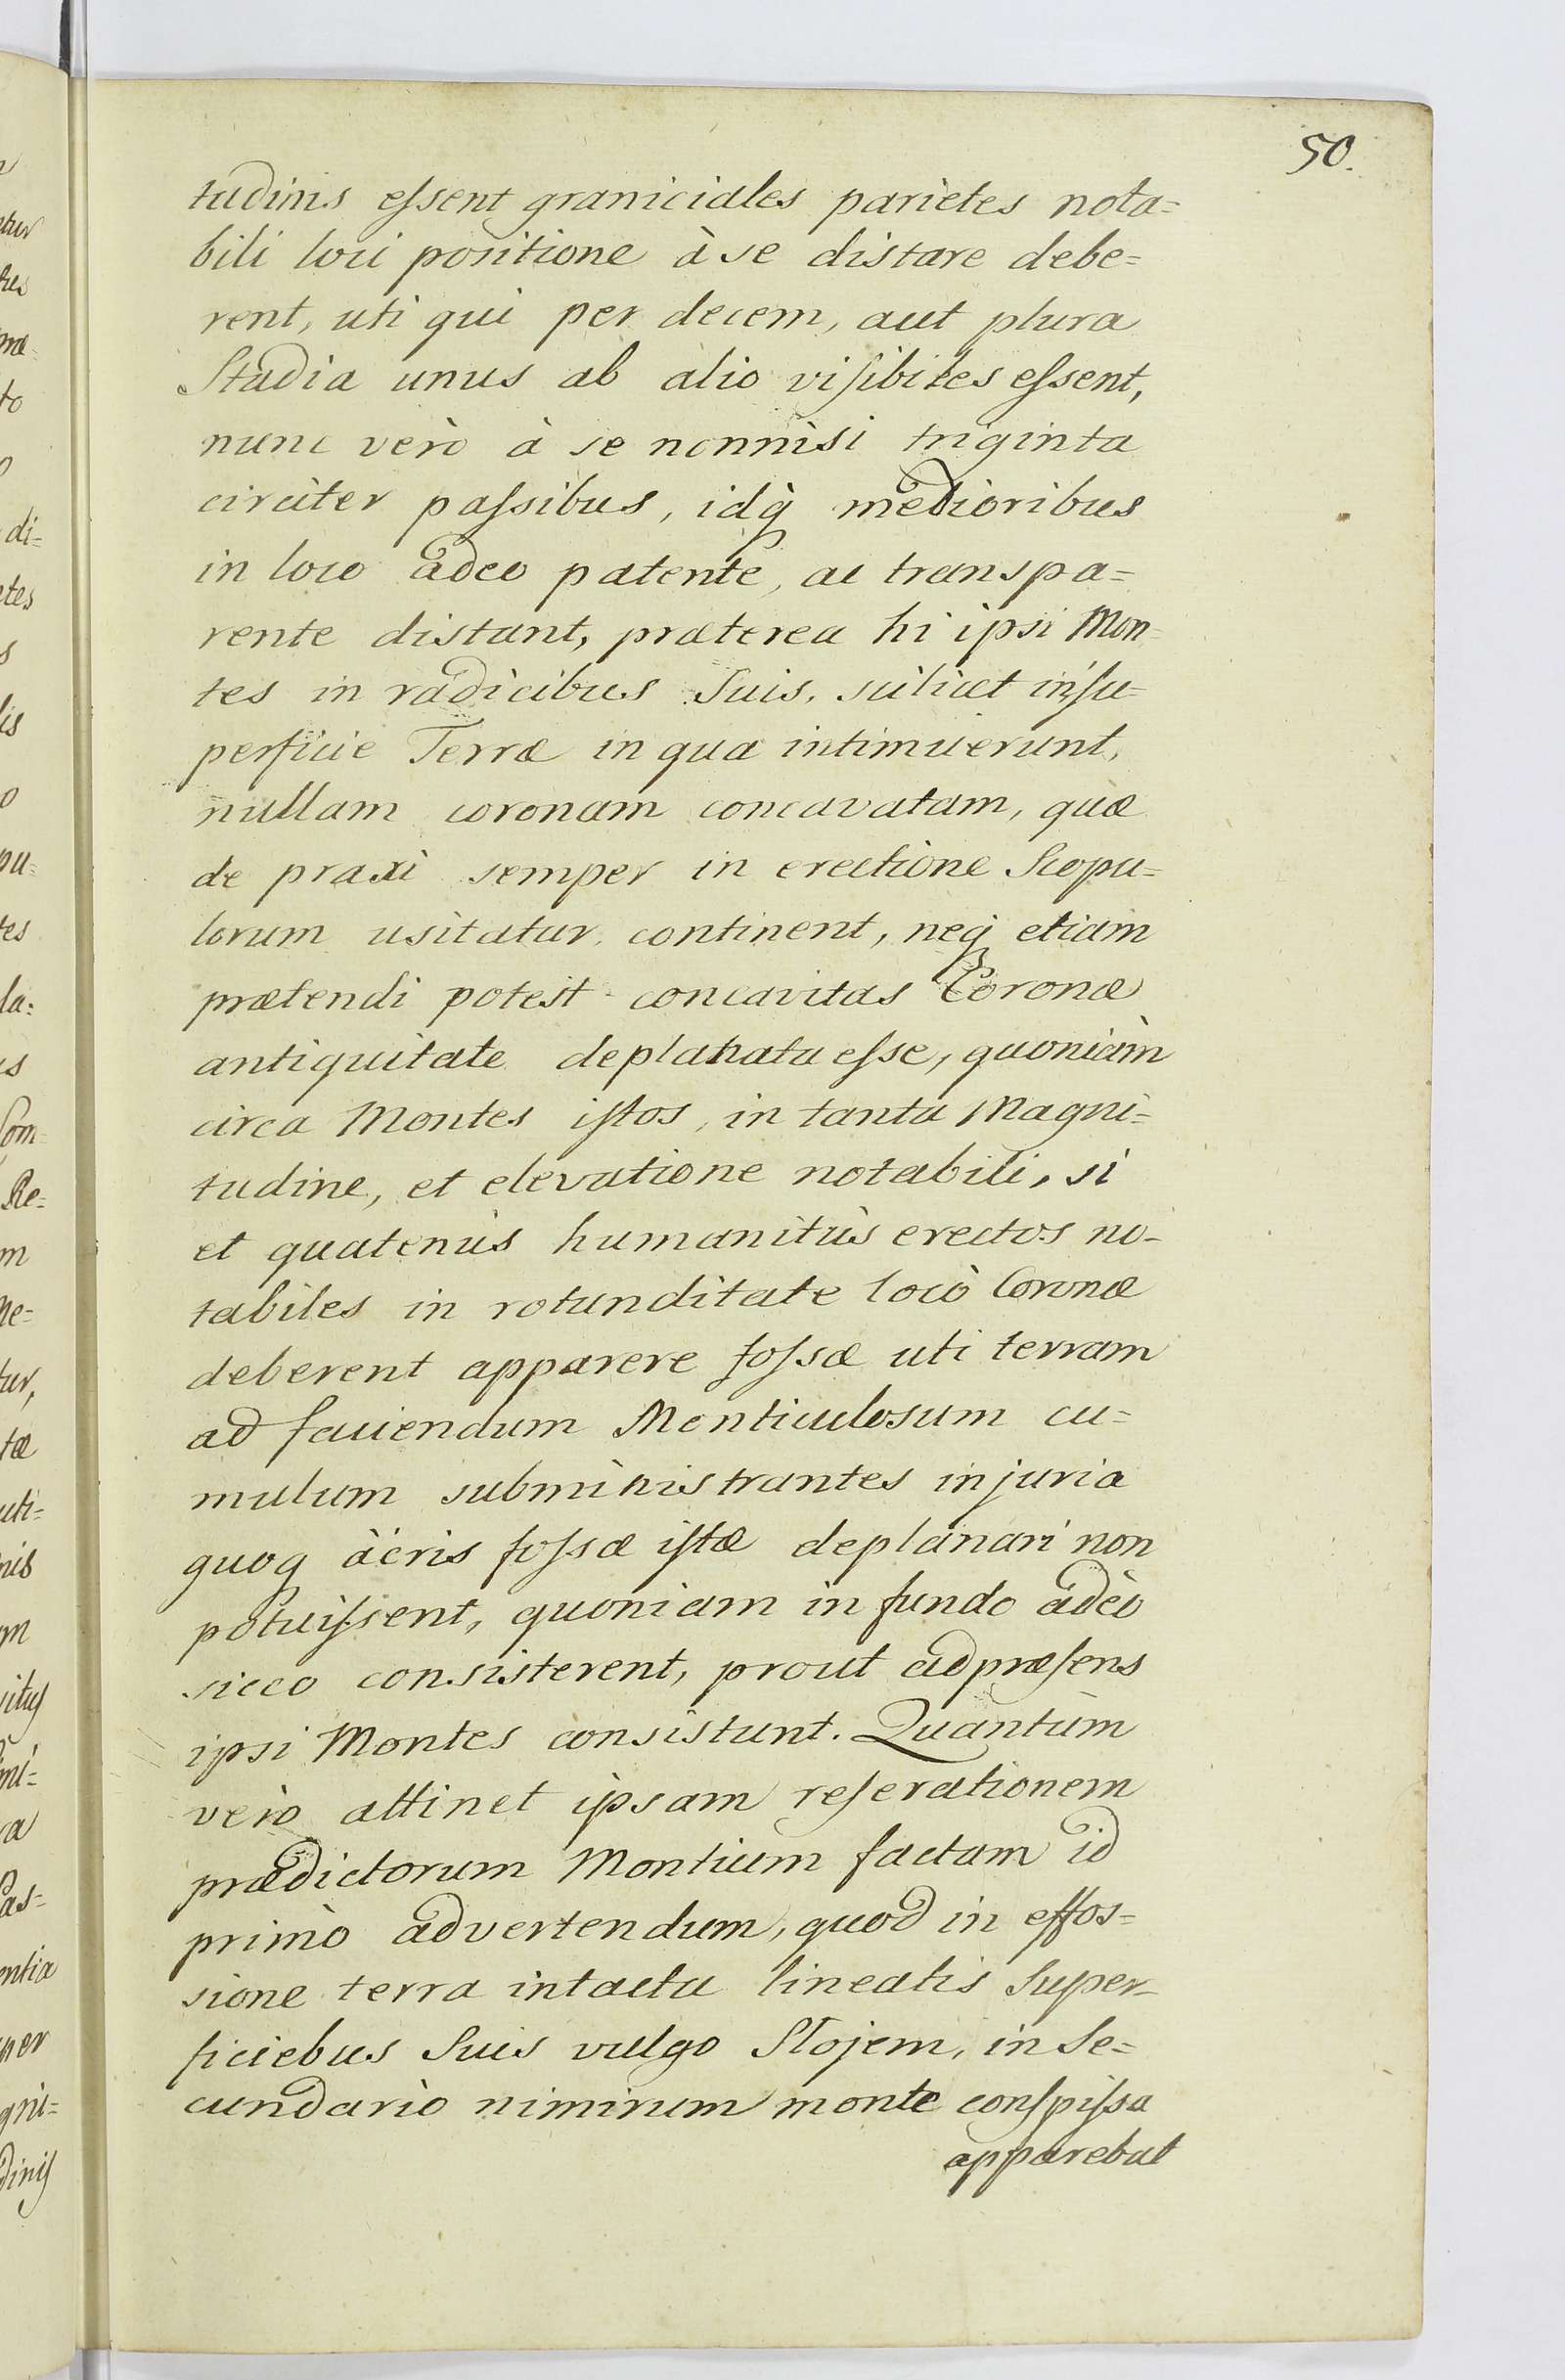 50.
tudinis eſsent graniciales parietes nota=
bili loci positione à se distare debe=
rent, uti qui per decem, aut plura
Stadia unus ab alio viſibiles eſsent,
nunc verò à se nonnisi triginta
circiter paſsibus, idq̀ medioribus
in loco adeo patente, ac transpa=
rente distant, præterea hi ipsi Mon=
tes in radicibus Suis, scilicet in ſu=
perficie Terræ in qua intimuerunt,
nullam coronam concavatam, quæ
de praxi semper in erectione Scopu=
lorum usitatur, continent, neq etiam
prætendi potest concavitas Coronæ
antiquitate deplanata eſse, quoniàm
circa Montes iſtos, in tanta Magni=
tudine, et elevatione notabili, si
et quatenùs humanitùs erectos no-
tabiles in rotunditate locò Coronæ
deberent apparere foſsæ uti terram
ad faciendum Monticulosum cu=
mulum subministrantes injuria
quoq äeris foſsæ iſtæ deplanari non
potuiſsent, quoniam in fundo adèo
sicco consisterent, prout ad præſens
ipsi Montes consistunt. Quantùm
verò attinet ipsam reſerationem
prædictorum Montium factam id
primò advertendum, quod in effos=
sione terra intacta lineatis Super-
ficiebus Suis vulgo Stojem, in Se=
cundario nimirum monte conſpiſsa
apparebat